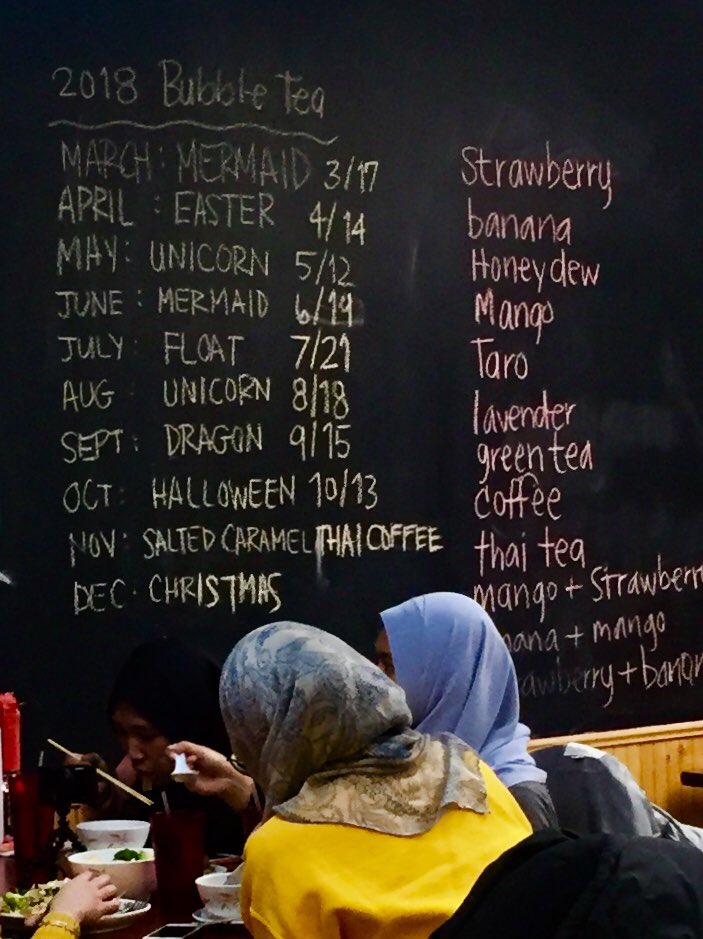 2018 Bubble Tea
MARCH: MERMAID 3/17
APRIL : EASTER 4/14
MAY: UNICORN 5/12
JUNE : MERMAID 6/19
JULY : FLOAT 7/21
AUG : UNICORN 8/18
SEPT: DRAGON 9/15
OCT: HALLOWEEN 10/13
NOV: SALTED CARAMEL THAI COFFEE
DEC. CHRISTMAS
Strawberry
banana
Honeydew
Mango
Taro
lavender
green tea
coffee
thai tea
mango + Strawberr
+ mango
+ banan